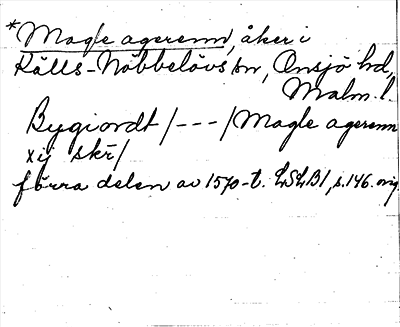 *Magle agerenn, åker i
Källs-Nöbbelövs sn, Onsjö hd,
Malm. l.
Bygiordt /---/ Magle agerenn
xij skr/
förra delen av 1570-t. LSLB1, s. 146. orig.